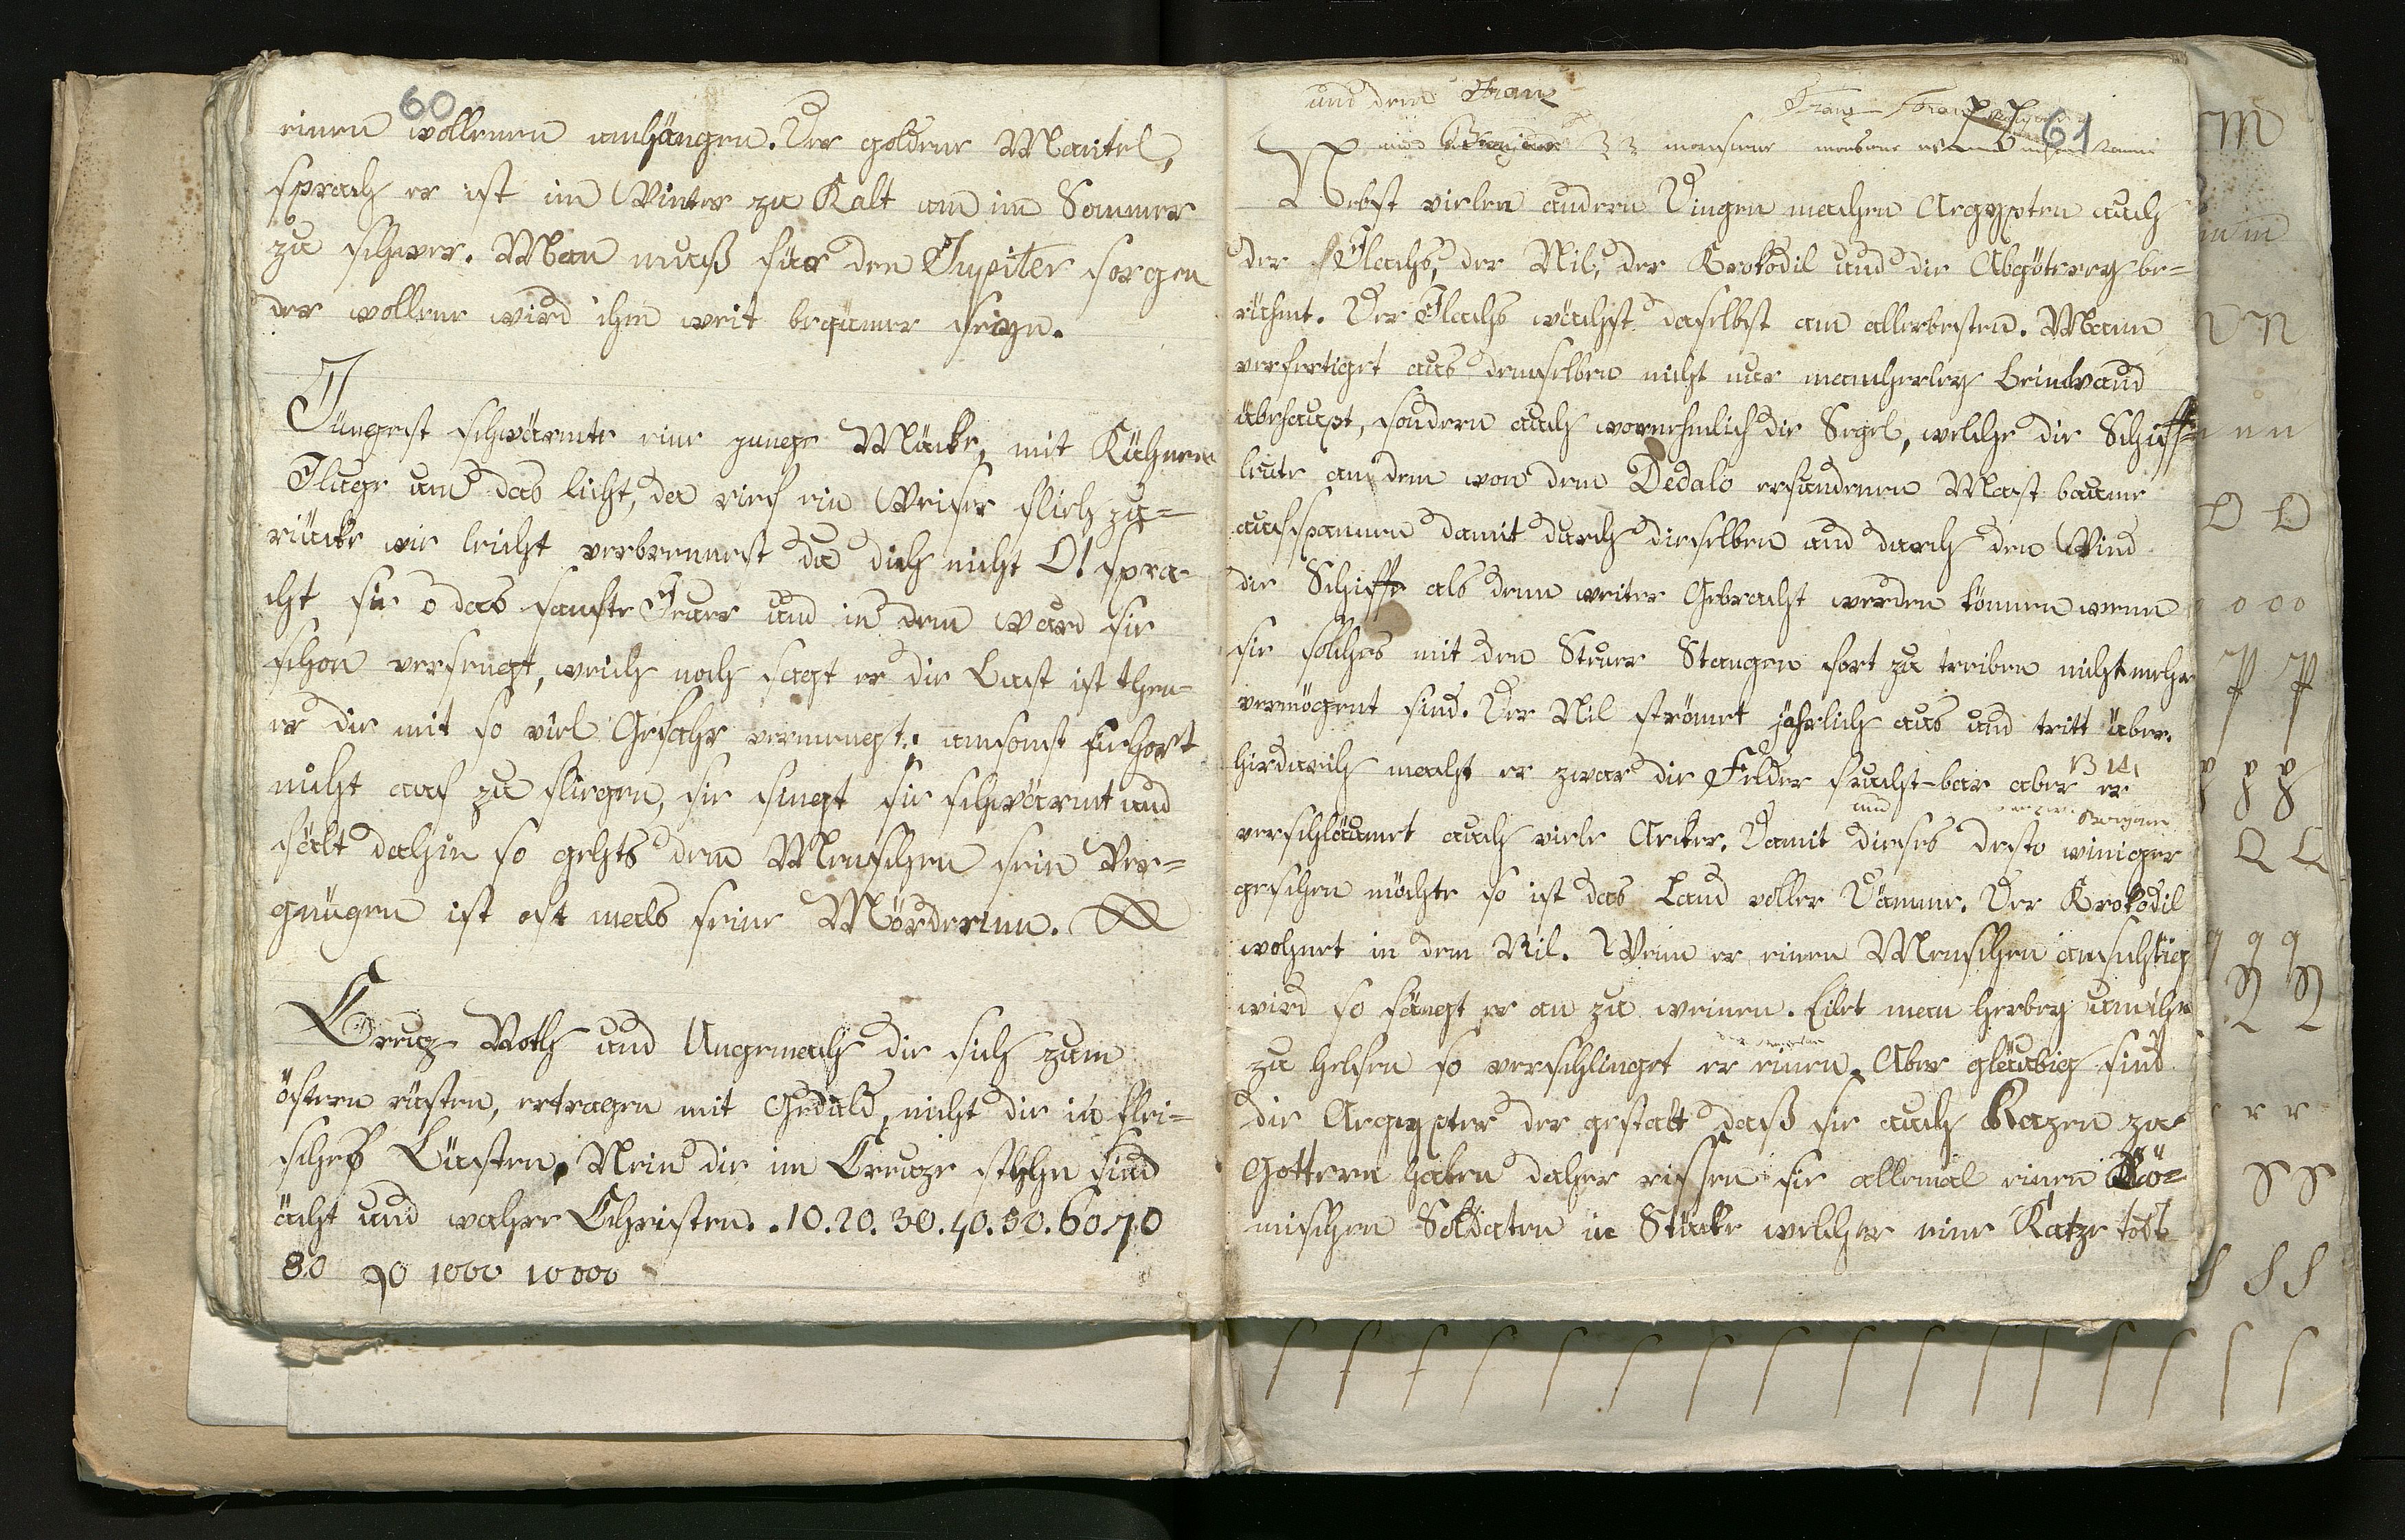 60
einen wollenen umhängen. Der goldene Mantel,
sprach er ist im Winter zu Kalt um im Sommer
zu schwer. Man muß für den Jupiter sorgen
der wollene wird ihm weit bequmer seiyn.
Jüngest schwärmte eine junege Mücke, mit Kühnem
Fluge um das licht, da rief ein Weiser flieh zu-
rücke wie leicht verbrennest du dich nicht O! spra-
cht sie o das sanfte Feuer und in dem ward sie
schon versengt, weich noch sagt er die Lust ist theu-
er die mit so viel Gefahr vermengt: umsonst sie hört
nicht auf zu fliegen, sie singt sie schwärmt und
fält dahin so gehts dem Menschen sein Ver-
gnügen ist oft mals seine Mörderinn.
Creuz Noth und Ungemach die sich zum
öftern rüsten, ertragen mit Geduld, nicht die in flei-
sches Lüsten, Nein die im Creuze stehhn sind
ächt und wahre Christen. . 10. 20. 30. 40. 50. 60. 70
80 90 1000 10000
61
und dem Franz
Franz
Nebst vielen andern Dingen machen Aegypten auch
der Flachs, der Nil, der Krokodil und die Abgötterey be-
rühmt. Der Flachs wächst daselbst am allerbesten. Mann
verfertiget aus demselben nicht nur mancherley Leindwand
übehaupt, sondern auch vornehmlich die Segel, welche die Schiff-
leute an dem von dem Dedalo erfundenen Mast baume
aufspannen damit durch dieselben und durch den Wind
die Schiffe als denn weiter Gebracht werden können wenn
sie solches mit den Steuer Stangen fort zu treiben nicht mehr
vermögent sind. Der Nil strömet jährlich aus und tritt über.
hirdurch macht er zwar die Felder frucht-bar aber er
und
verschläumet auch viele Aecker. Damit dieses desto winiger
geschen möchte so ist das Land voller Dämme. Der Krokodil
wohnet in dem Nil. Wenn er einen Menschen ansichtig
wird so fängt er an zu weinen. Eilet man herbey um ihm
zu helfen so verschlinget er einen. Aber gläubig sind
die Aegypter der gestalt daß sie auch Kazen zu
Gottern haben daher rissen sie allemal einen Rö-
mischen Soldaten in Stücke welcher eine Katze todt-